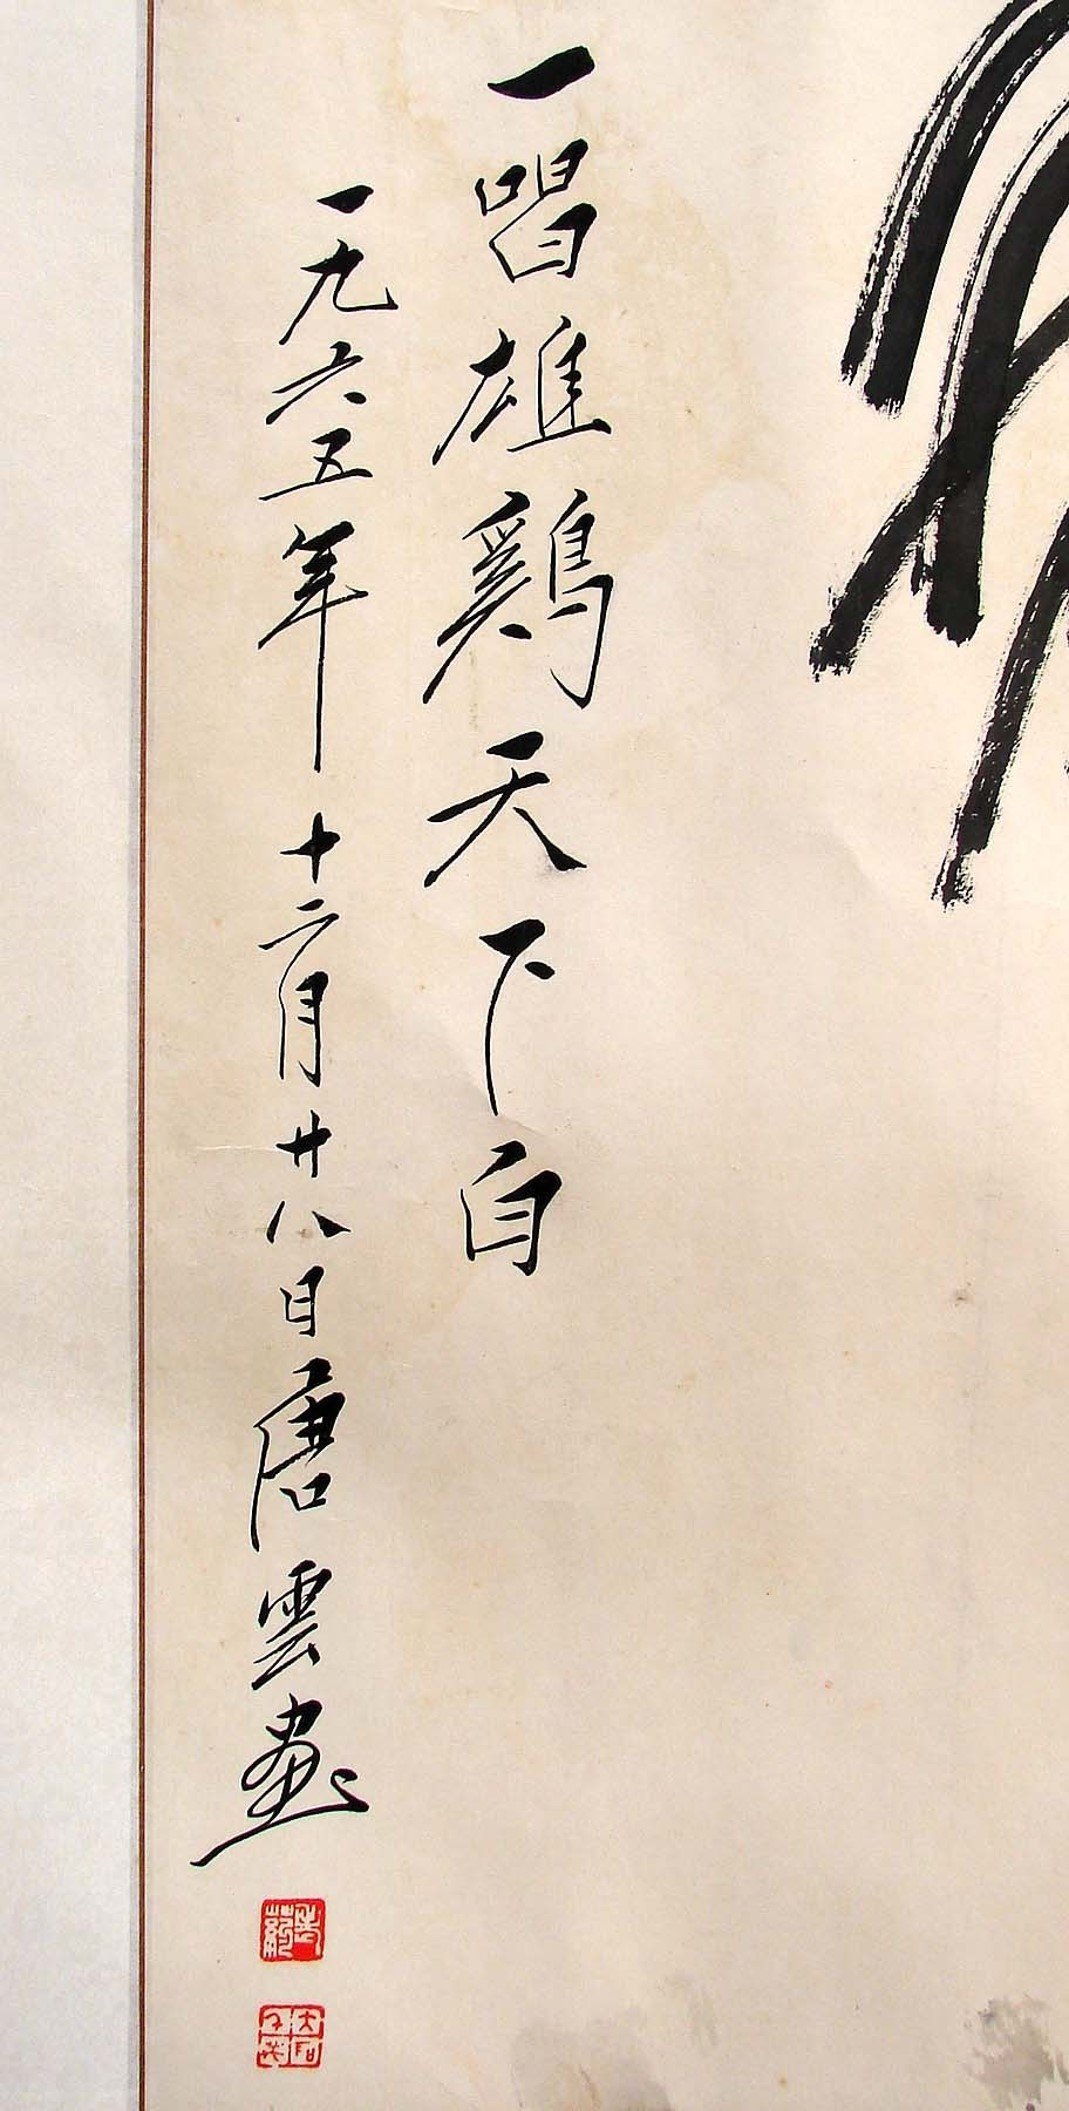 一唱雄鷄天下白
一九六五年十二月廿八日唐雲畫